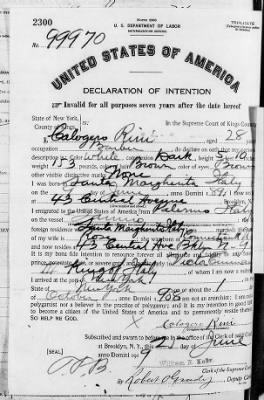 2300
U. S. DEPARTMENT OF LABOR
No. 99970
UNITED STATES OF AMERICA
DECLARATION OF INTENTION
Invalid for all purposes seven years after the date hereof
State of New York,
In the Supreme Court of Kings County
Calogero Rini aged 28
occupation Barber do declare on oath that my personal
description is: Color White, complexion Dark, height 5 10
153 pounds, color of hair Brown, color of eyes Brown
other visible distinctive marks None
I was born in Santa Margherita Italy
on the anno Domini 1 I now reside
at 43 Central Avenue
I emigrated to the United States of America from Palermo Italy
foreign residence was Santa Margherita
43 Central Ave
It is my bona fide intention to renounce forever all allegiance and fidelity
Victor Emmanuel
King of Italy of whom I am now a
I arrived at the port of New York
in the
State of New York on or about the 1
October anno Domini 1906 I am not an anarchist; I am not a
polygamist nor a believer in the practice of polygamy; and it is my intention in good faith
to become a citizen of the United States of America and to permanently reside therein:
SO HELP ME GOD.
X Calogero Rini
Subscribed and sworn to before me in the office of the Clerk of said Court
at Brooklyn, N. Y., this 23 day of June
anno Domini 19
[SEAL]
William E. Kelly
Clerk of the Supreme Court
By Robert O'Grady, Deputy Clerk